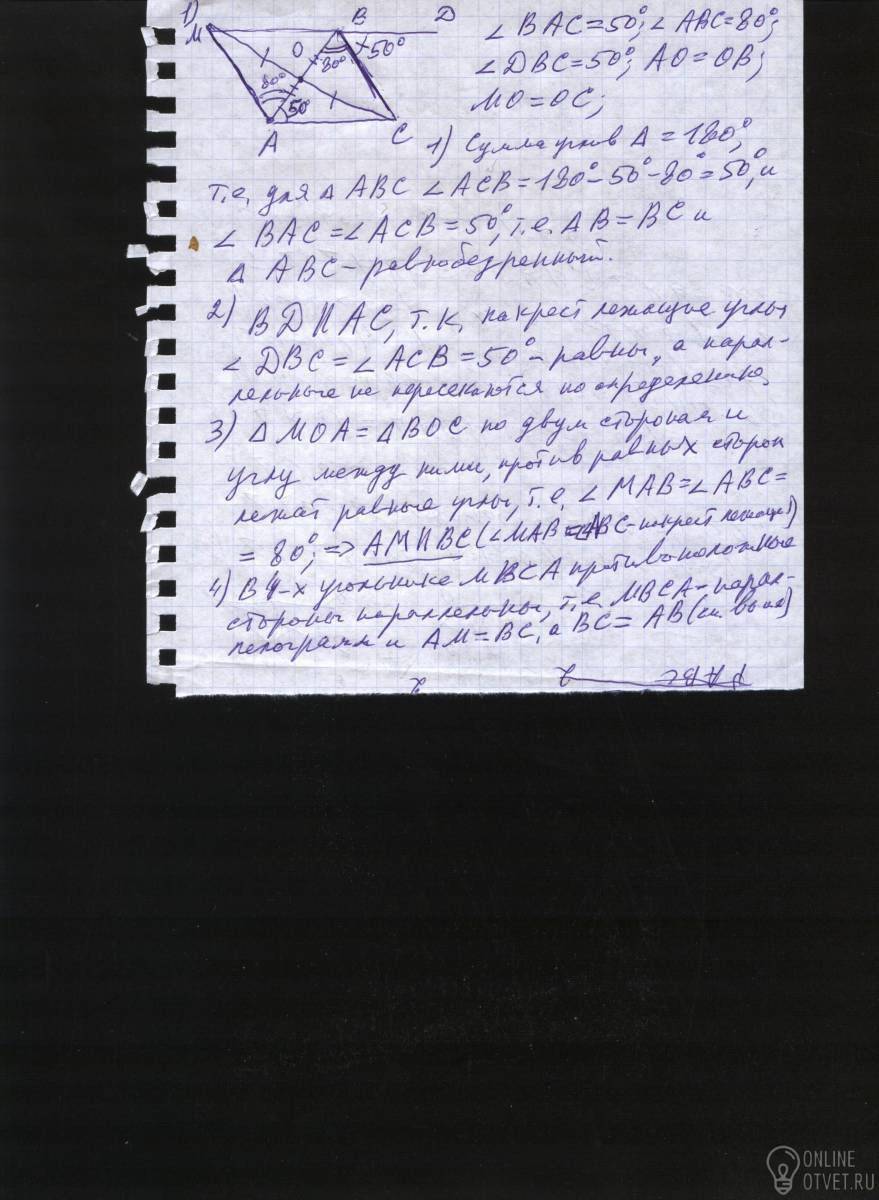 1)
M
B
D
1
O
80°
50°
80°
50°
1
A
C
∠ BAC = 50°; ∠ ABC = 80°;
∠ DBC = 50°; AO = OB;
MO = OC;
1) Сумма углов Δ = 180°,
т.е. для Δ ABC ∠ ACB = 180° - 50° - 80° = 50°, и
∠ BAC = ∠ ACB = 50°, т.е. AB = BC и
Δ ABC - равнобедренный.
2) BD || AC, т.к. накрест лежащие углы
∠ DBC = ∠ ACB = 50° - равны, а парал-
лельные не пересекаются по определению.
3) Δ MOA = Δ BOC по двум сторонам и
углу между ними, против равных сторон
лежат равные углы, т.е. ∠ MAB = ∠ ABC =
= 80°; => AM || BC (∠ MAB = ∠ABC - накрест лежащ)
4) В 4-х угольнике MBCA противоположные
стороны параллельны, т.е. MBCA - парал-
лелограмм и AM = BC, а BC = AB (см. выше)
ONLINE
OTVET.RU